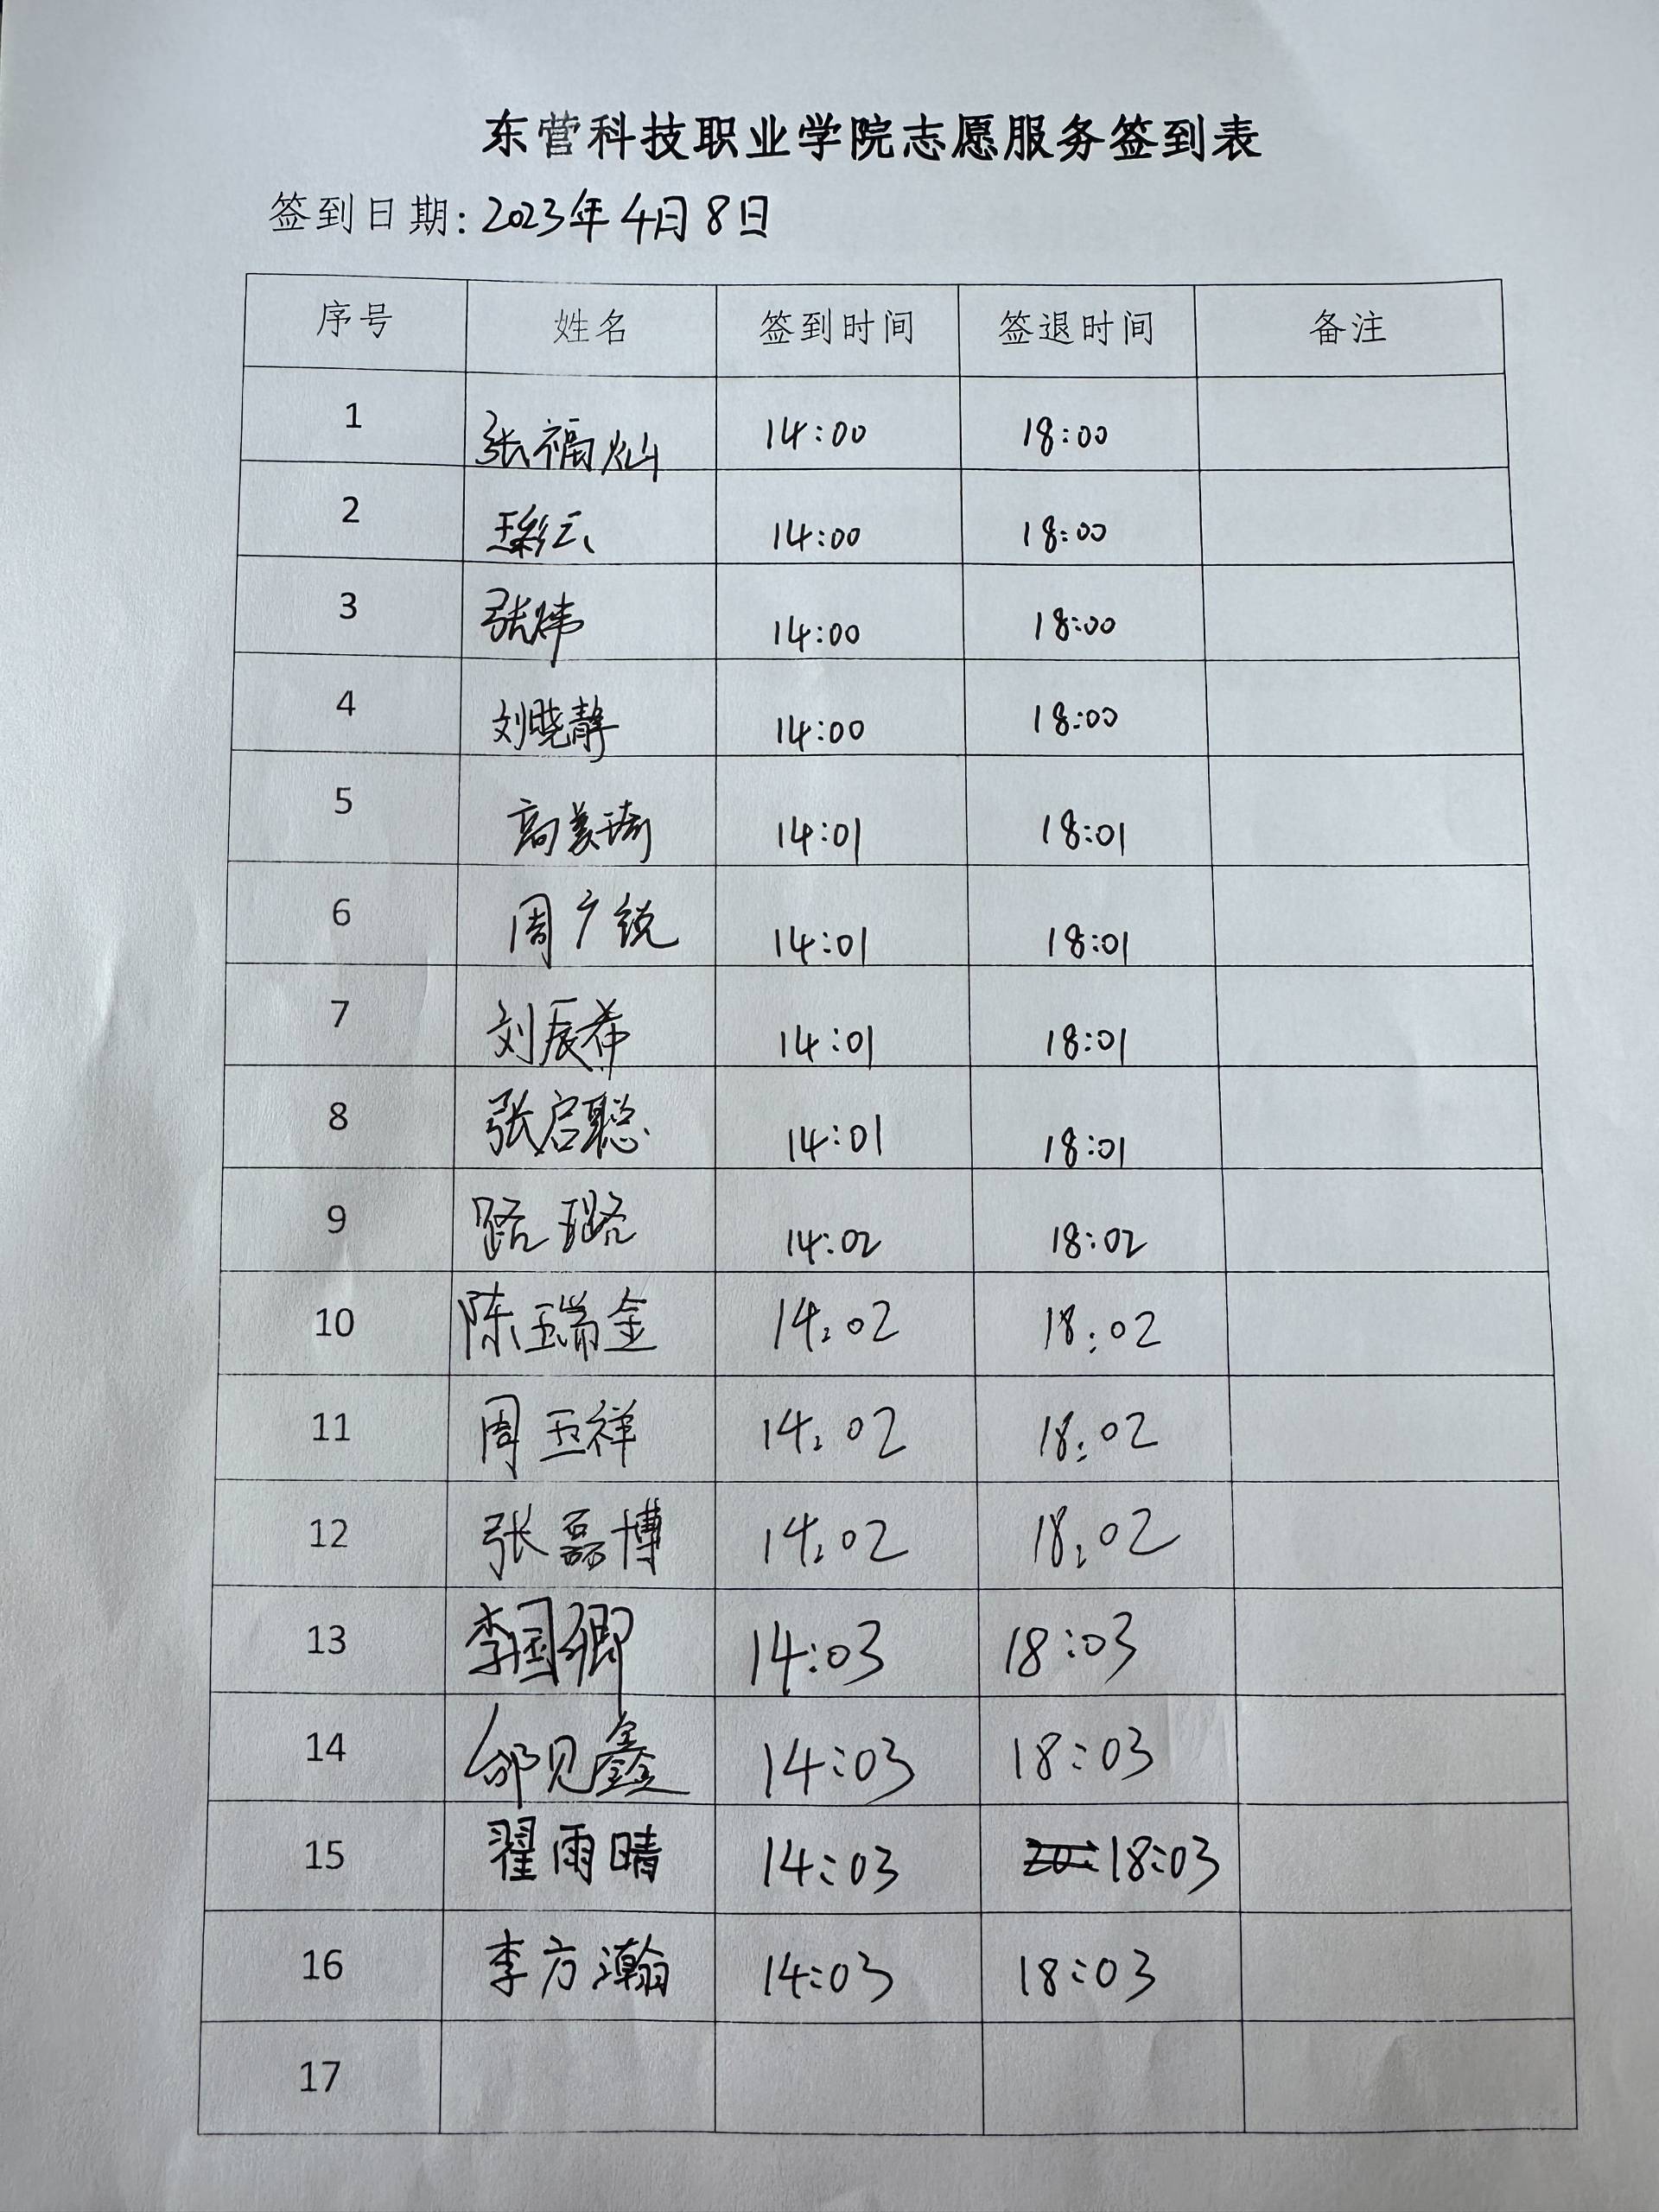 东营科技职业学院志愿服务签到表
签到日期: 2023年4月8日
序号 姓名 签到时间 签退时间 备注
1 张福灿 14:00 18:00
2 王彩云 14:00 18:00
3 张炜 14:00 18:00
4 刘晓静 14:00 18:00
5 高美琦 14:01 18:01
6 周广锐 14:01 18:01
7 刘辰希 14:01 18:01
8 张启聪 14:01 18:01
9 路璐 14:02 18:02
10 陈瑞金 14:02 18:02
11 周玉祥 14:02 18:02
12 张磊博 14:02 18:02
13 李国卿 14:03 18:03
14 邰见鑫 14:03 18:03
15 翟雨晴 14:03 18:03
16 李方瀚 14:03 18:03
17